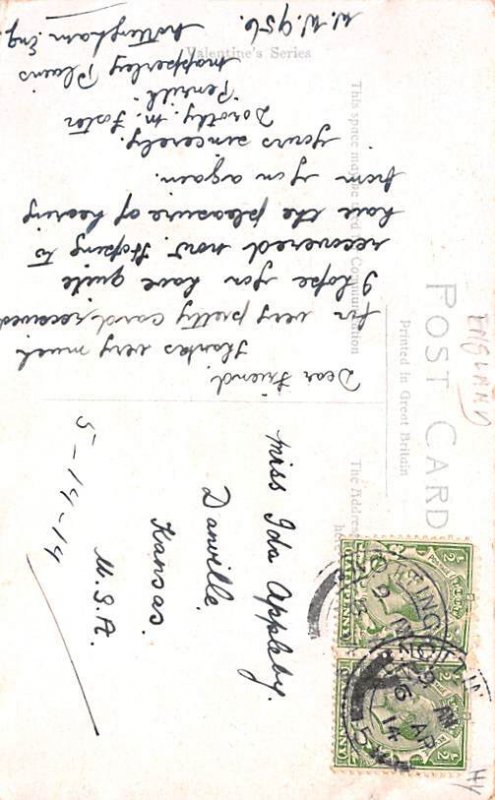 POST CARD
Printed in Great Britain
Valentine's Series
This space may be used for Communication
The Address
ENGLAND
Dear Friend.
Thanks very much
for very pretty card, received
I hope you have quite
recovered now. Hoping to
have the pleasure of hearing
from you again.
Yours sincerely.
Dorothy. M. Foster
Penhill.
Mapperley Plains
Nottingham. Eng.
W. W. 956.
Miss Ida Appleby.
Danville.
Kansas.
U.S.A.
5-14-14
HALFPENNY
HALFPENNY
AP
14